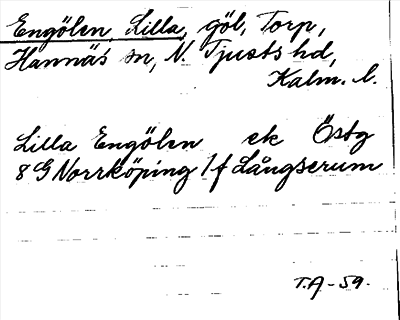 Engölen, Lilla, göl, Torp,
Hannäs sn, N. Tjusts hd,
Kalm. l.
Lilla Engölen ek Östg
8 G Norrköping 1 f Långserum
T.A-59.